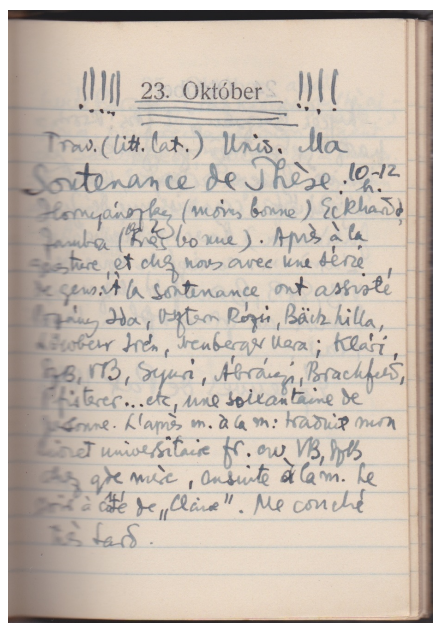 !!!!! 23. Október !!!!!
Trav. (litt. lat.) Univ. Ma
Soutenance de Thèse. 10-12
h.
(moins bonne) Eckhardt,
Zambra (très bonne). Après à la
questure, et chez nous avec une série
de gens. À la soutenance ont assisté
Ida, Rózsi, Bäck Killa,
Irén, ; Klári,
VB, Gyuri, Ábrányi, Brachfeld,
Pfisterer...etc, une soixantaine de
personne. L'après m. à la m: traduit mon
livret universitaire fr. VB,
chez gde mère, ensuite à la m. Le
soir à côté de „Claire". Me couché
très tard.